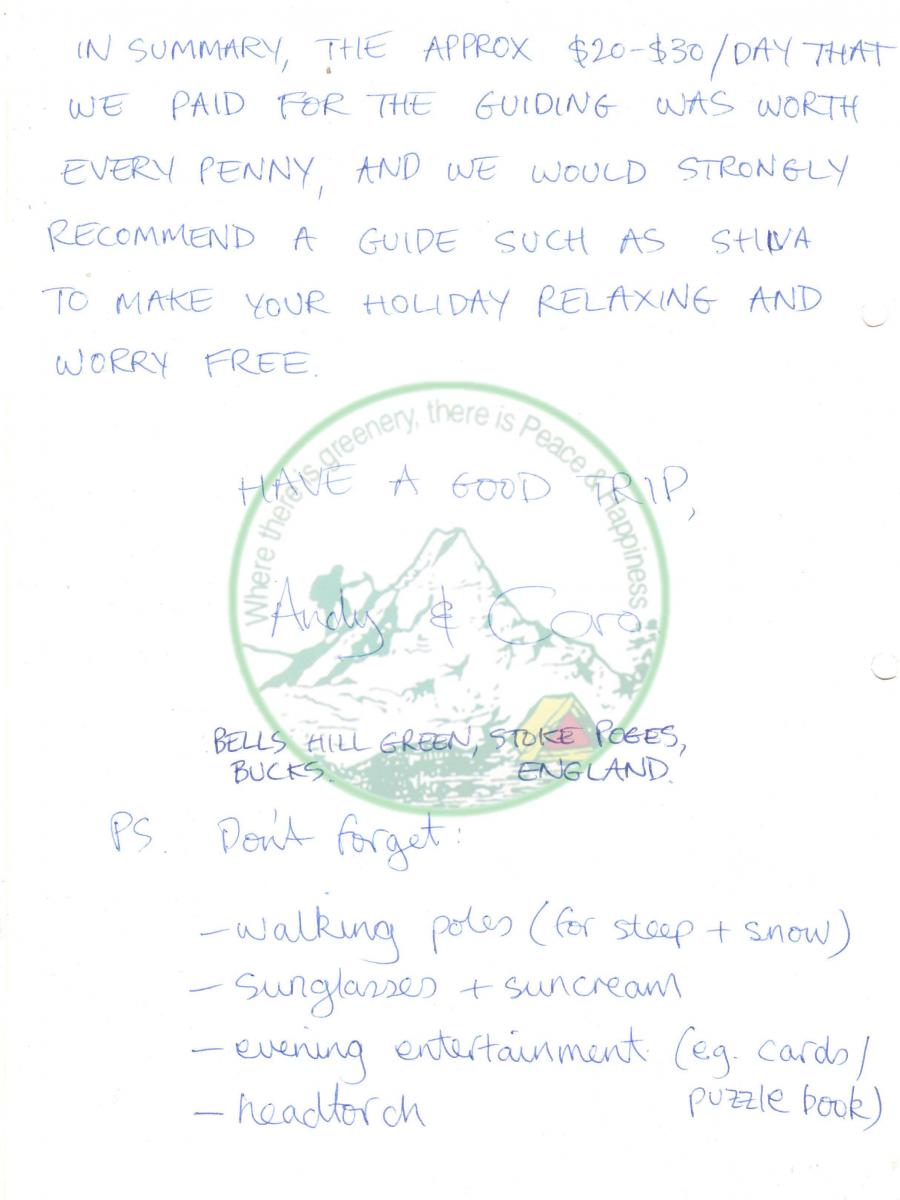 IN SUMMARY, THE APPROX $20-$30/DAY THAT
WE PAID FOR THE GUIDING WAS WORTH
EVERY PENNY, AND WE WOULD STRONGLY
RECOMMEND A GUIDE SUCH AS SHIVA
TO MAKE YOUR HOLIDAY RELAXING AND
WORRY FREE.
Where there is greenery, there is Peace & Happiness
HAVE A GOOD TRIP,
Andy & Caro
BELLS HILL GREEN, STOKE POGES,
BUCKS. ENGLAND.
PS. Don't forget:
- walking poles (for steep + snow)
- sunglasses + suncream
- evening entertainment (eg. cards/
puzzle book)
- headtorch